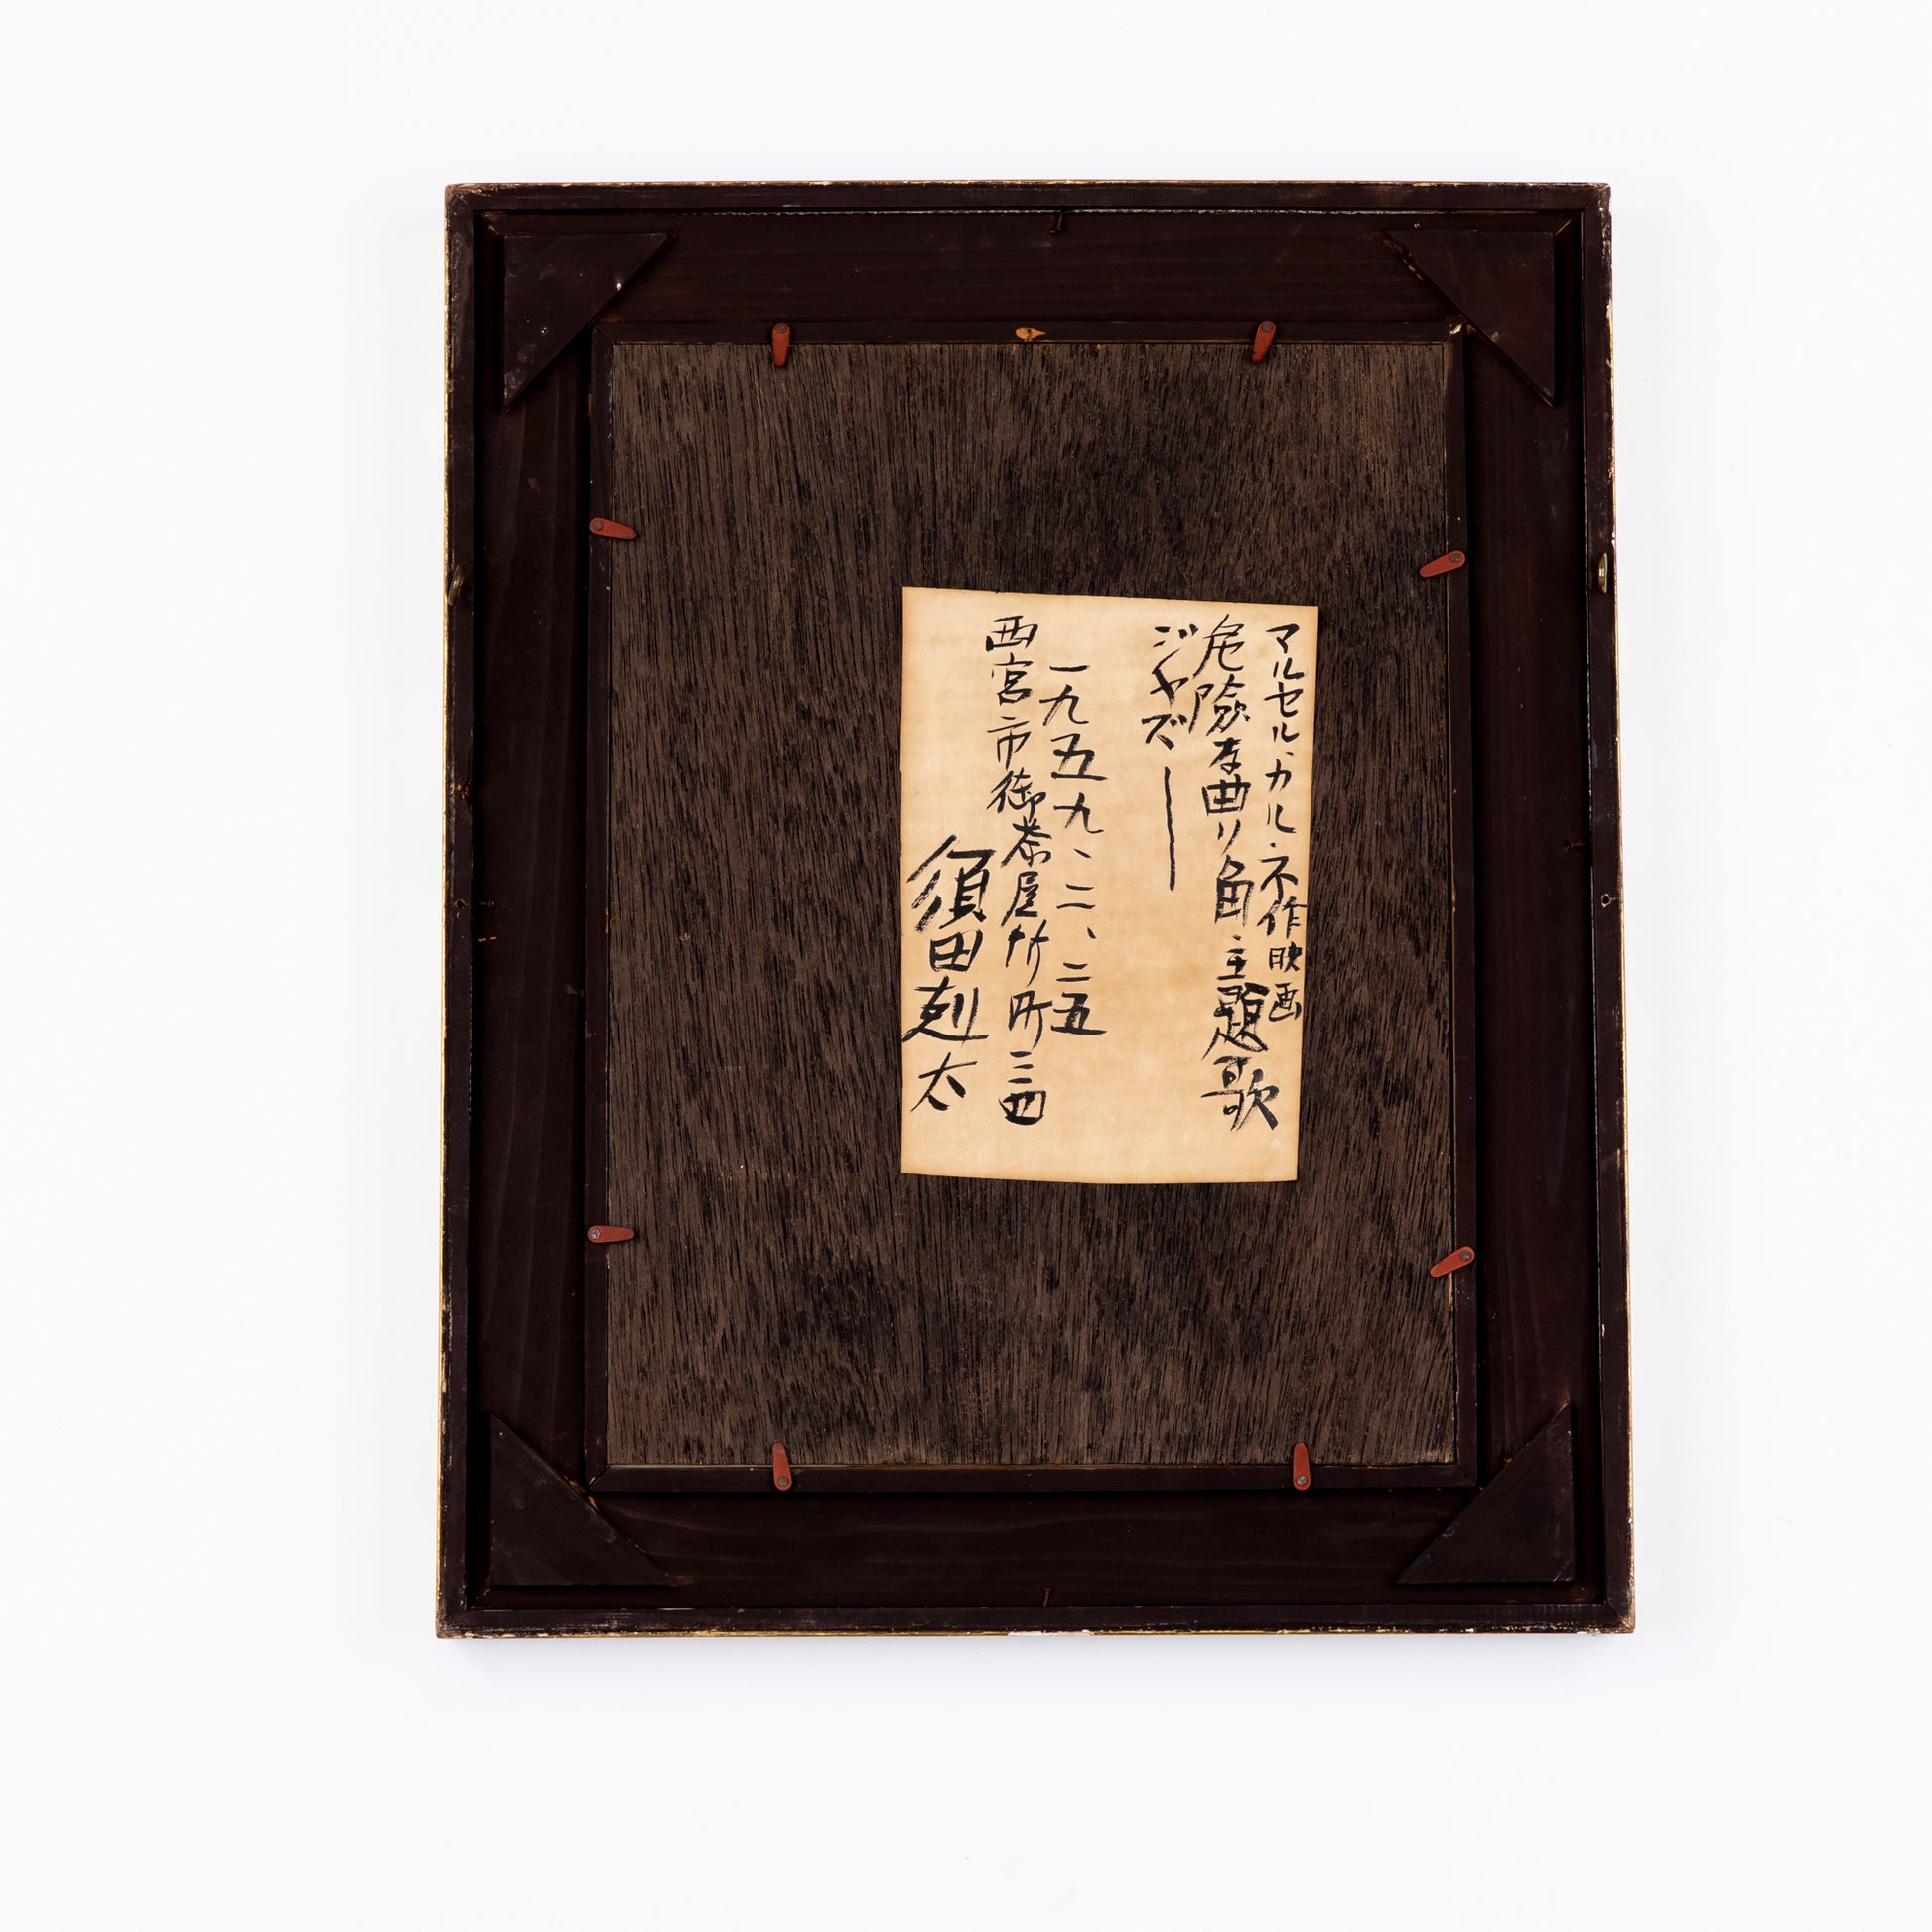 マルセル、カル、ネ作映画
危險な曲り角主題歌
ジャズ―
一九五九、二、二五
西宮市御茶屋所町三四
須田剋太